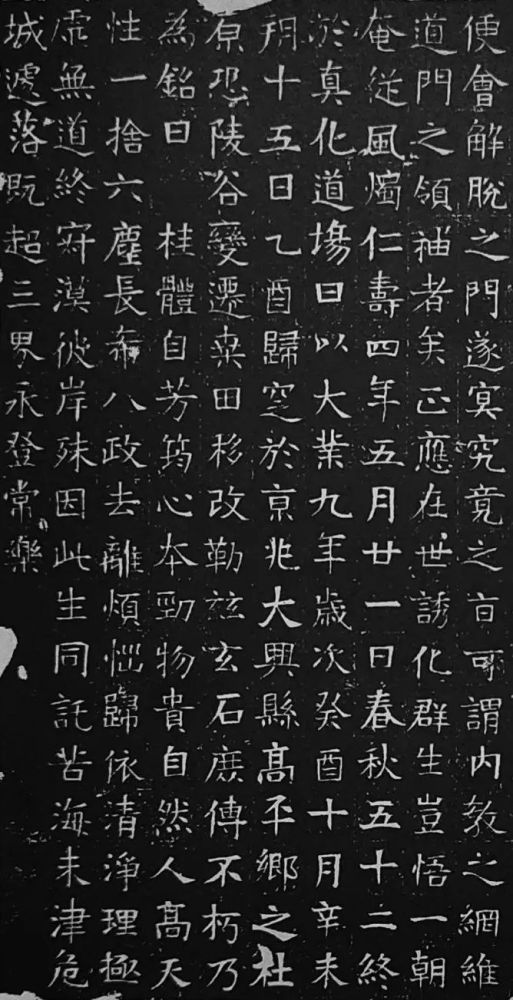 便會解脫之門遂冥究竟之旨可謂內教之綱維
道門之領袖者矣正應在世誘化群生豈悟一朝
奄從風燭仁壽四年五月廿一日春秋五十二終
於真化道場曰以大業九年歲次癸酉十月辛未
朔十五日乙酉歸窆於京兆大興縣高平鄉之杜
原恐陵谷變遷桒田移改勒玆玄石庶傳不朽乃
為銘曰　桂體自芳筠心本勁物貴自然人高天
性一捨六塵長希八政去離煩惱歸依清淨理極
虛無道終寂漠彼岸殊因此生同託苦海未津危
城遽落既超三界永登常樂